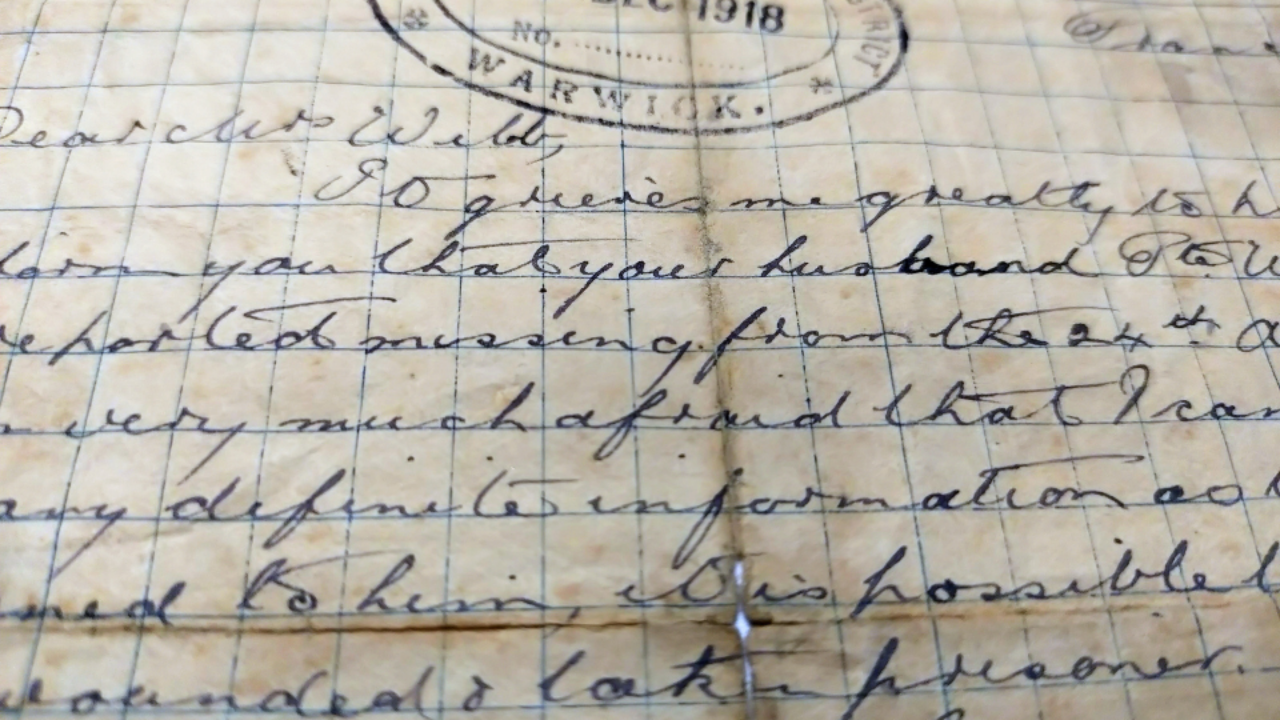 DEC 1918
No. ....................
* WARWICK. *
Dear Mrs Webb,
It grieves me greatly to
you that your husband Pte W
reported missing from the 24th
very much afraid that I can
any definite information as
ned to him, it is possible
wounded & taken prisoner.